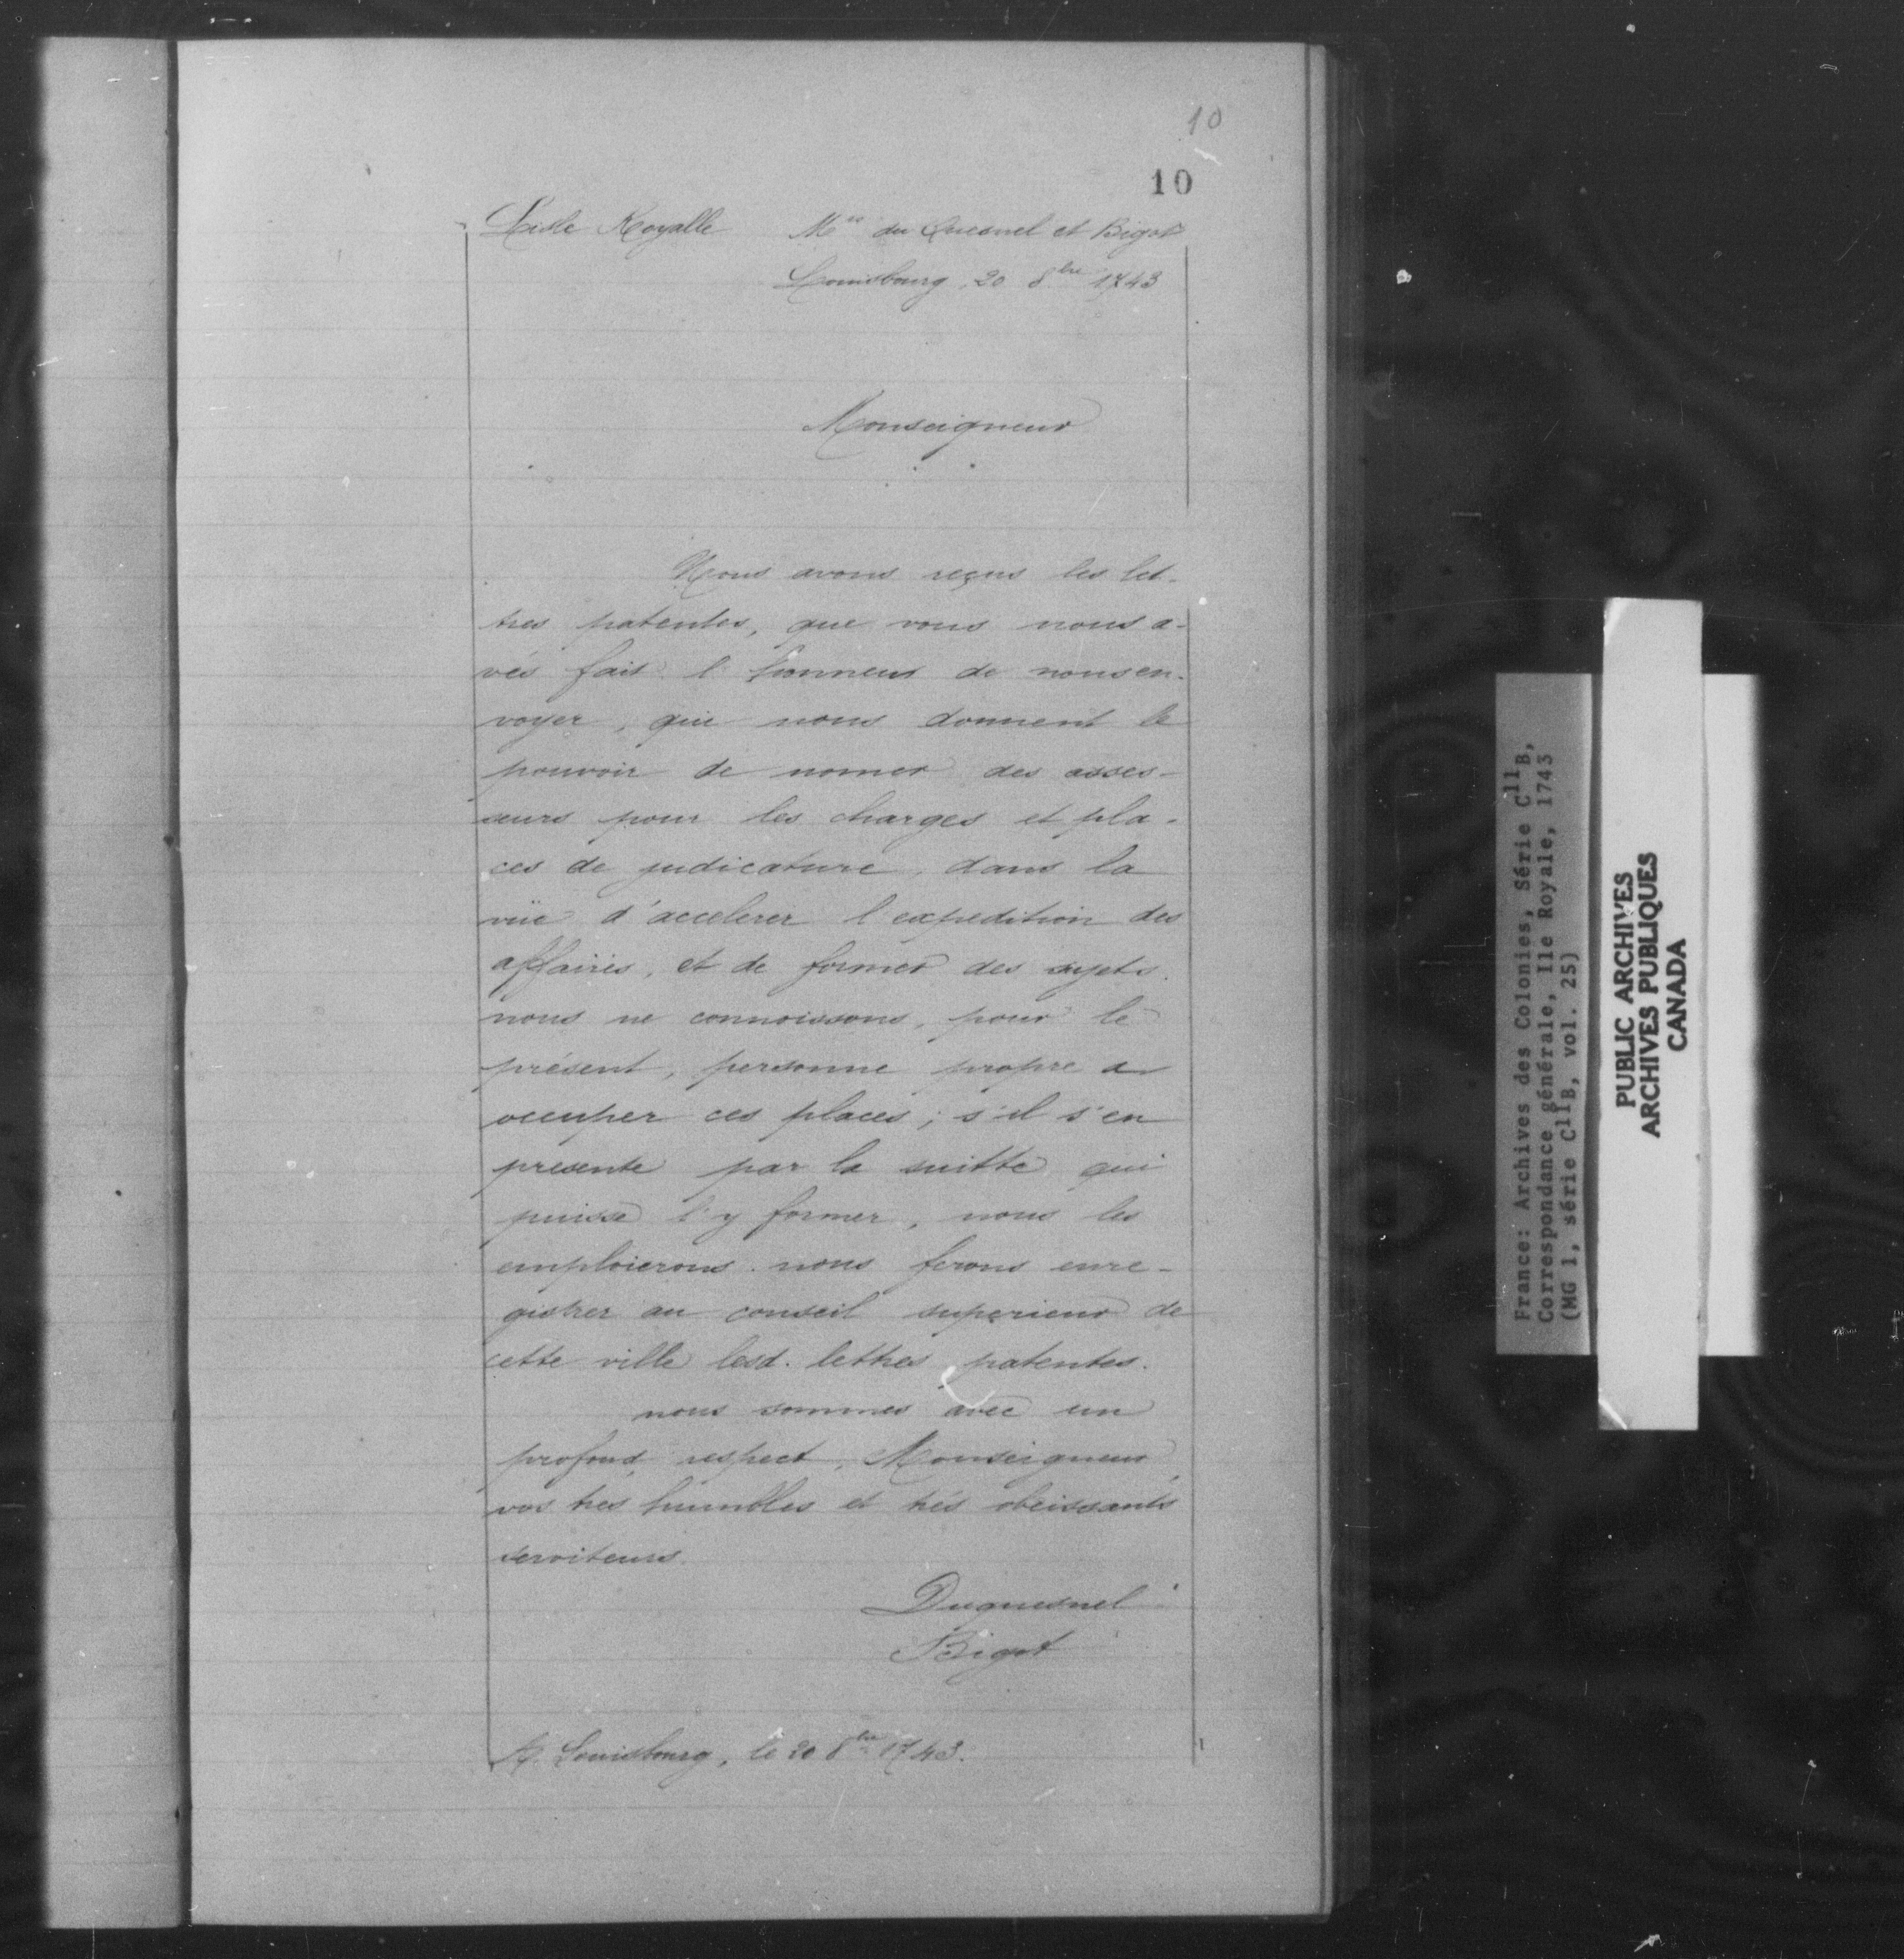 10
10
L'isle Royalle Mrs du Quesnel et Bigot
Louisbourg, 20 8bre 1743
Monseigneur
Nous avons reçus les let-
tres patentes, que vous nous a-
vés fait l'honneur de nous en-
voyer, qui nous donnent le
pouvoir de nomer des asses-
seurs pour les charges et pla-
ces de judicature, dans la
vüe d'accelerer l'expedition des
affaires, et de former des sujets.
nous ne connoissons, pour le
présent, personne propre a
occuper ces places; s'il s'en
presente par la suitte qui
puisse s'y former, nous les
emploierons. nous ferons enre-
gistrer au conseil superieur de
cette ville lesd. lettres patentes.
nous sommes avec un
profond respect, Monseigneur,
vos tres humbles et trés obeissants
serviteurs.
Duquesnel
Bigot
A. Louisbourg, le 20 8bre 1743.
France: Archives des Colonies, Série C11B,
Correspondance générale, Ile Royale, 1743
(MG 1, série C11B, vol. 25)
PUBLIC ARCHIVES
ARCHIVES PUBLIQUES
CANADA